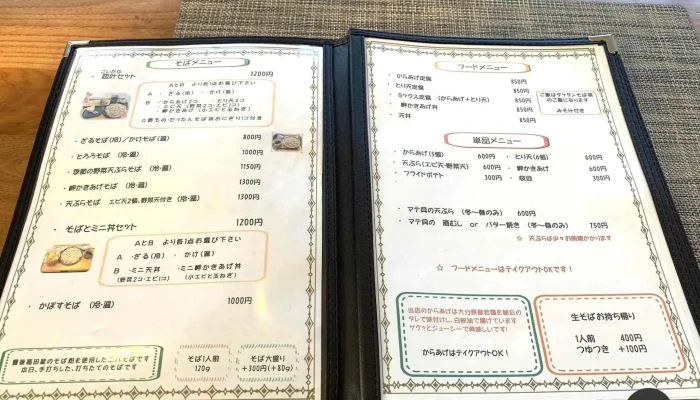 そばメニュー
こいかな
セット 1200円
AとB より各1点お選び下さい
A ・ざる(冷) ・かけ(温)
B ・からあげ2コ ・とり天2コ
・エビ天(野菜2コ・エビ1コ)
・岬かきあげ(小エビと玉ねぎ)
・ざるそば(冷)/かけそば(温) 800円
・とろろそば (冷・温) 1000円
・季節の野菜天ぷらそば (冷・温) 1150円
・岬かきあげそば (冷・温) 1300円
・天ぷらそば エビ天2個、野菜天付き(冷・温) 1300円
・そばとミニ丼セット 1200円
AとB より各1点お選び下さい
A ・ざる(冷) ・かけ(温)
B ・ミニ天丼 ・ミニ岬かきあげ丼
(野菜2コ・エビ1コ) (小エビと玉ねぎ)
・かぼすそば (冷・温) 1000円
豊後高田産のそば粉を使用した二八そばです
本日、手打ちした、打ちたてのそばです
そば1人前
120g
そば大盛り
+300円(+80g)
フードメニュー
・からあげ定食 850円
・とり天定食 850円
・ミックス定食 (からあげ+とり天) 850円
・岬かきあげ丼 850円
・天丼 850円
ご飯はダッタンそば茶
のご飯になります
みそ汁付き
単品メニュー
・からあげ(5個) 600円 ・とり天(6個) 600円
・天ぷら(エビ天・野菜天) 600円 ・岬かきあげ 600円
・フライドポテト 300円 ・枝豆 300円
・マテ貝の天ぷら (冬〜春のみ) 600円
・マテ貝の 酒むし or バター焼き (冬〜春のみ) 750円
☆ 天ぷらは少々お時間かかります
☆ フードメニューはテイクアウトOKです!
当店のからあげは大分県産若鶏を秘伝の
タレで味付けし、白絞油で揚げています
サクッとジューシーで美味しいです!
からあげはテイクアウトOK!
生そばお持ち帰り
1人前 400円
つゆつき +100円